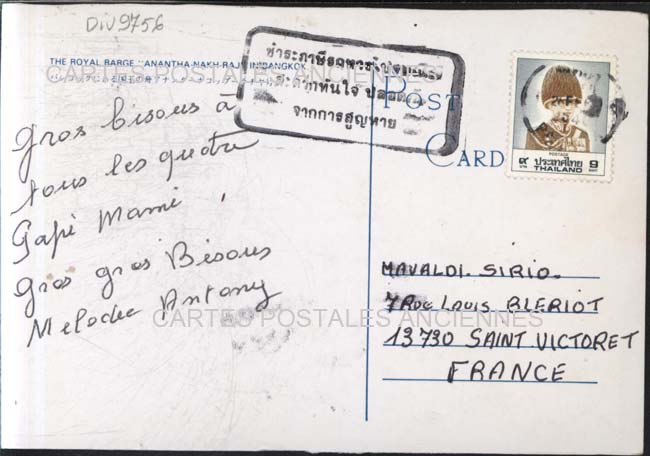 DIV9756
THE ROYAL BARGE "ANANTHA-NAKH-RAJ" IN BANGKOK
CARTES POSTALES ANCIENNES
ชำระภาษีรถ
ทันใจ ปลอดภัย
จากการสูญหาย
POST
CARD
๙ ประเทศไทย 9
บาท POSTAGE BAHT
THAILAND
Gros bisous à
tous les quatre
Papi Mami
Gros gros Bisous
Melodie Antony
CARTES POSTALES ANCIENNES
MAVALDI. SIRIO.
7 Rue LOUIS BLERIOT
13730 SAINT VICTORET
FRANCE